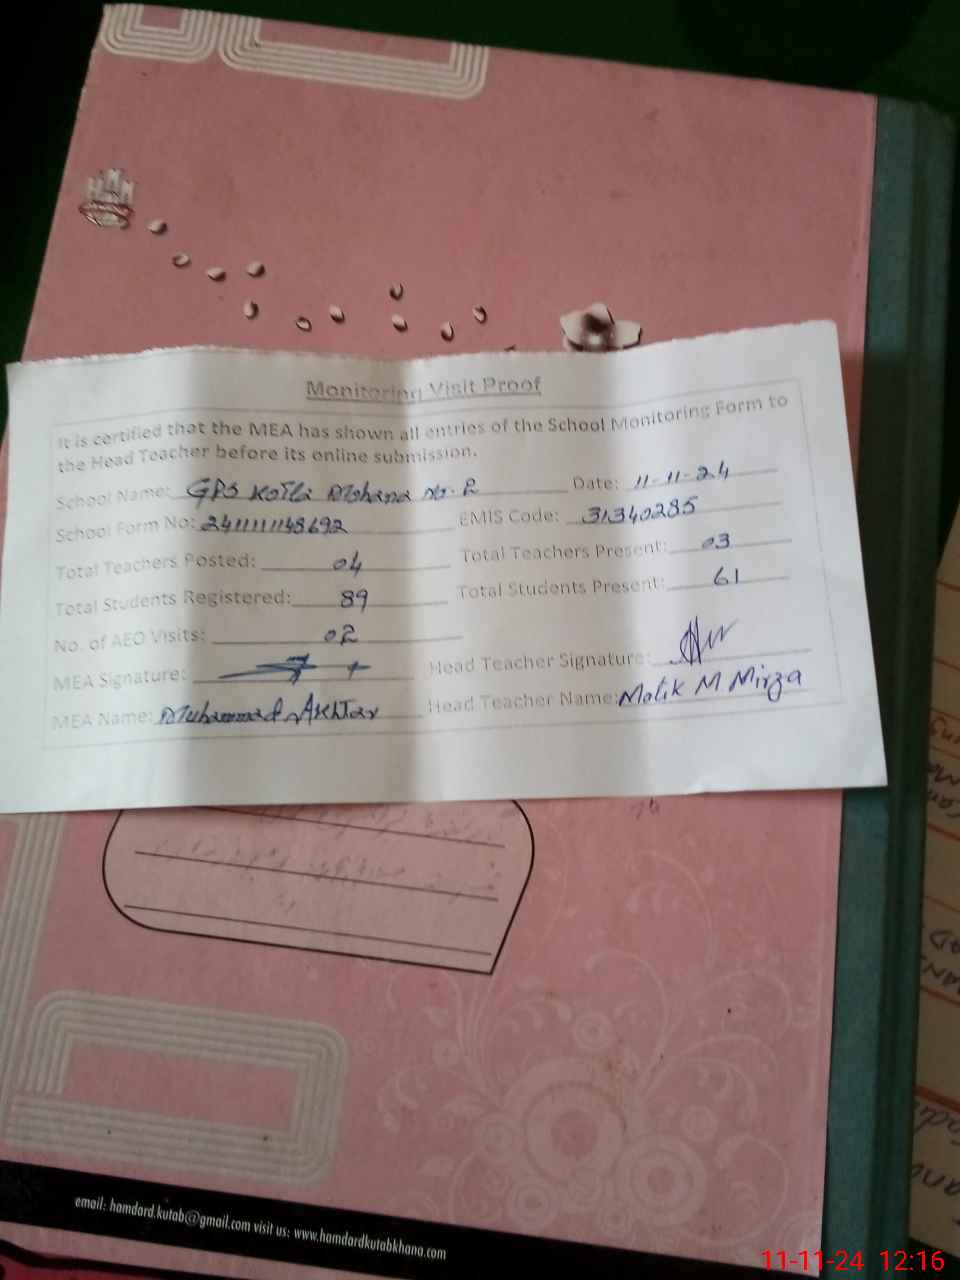 Monitoring Visit Proof
It is certified that the MEA has shown all entries of the School Monitoring Form to
the Head Teacher before its online submission.
School Name: GPS Kotla Mohana No. 2 Date: 11-11-24
School Form No: EMIS Code: 31340285
Total Teachers Posted: 04 Total Teachers Present: 03
Total Students Registered: 89 Total Students Present: 61
No. of AEO Visits: 02
MEA Signature: Head Teacher Signature:
MEA Name: Muhammad Akhtar Head Teacher Name: Malik M Mirza
email: hamdard.kutab@gmail.com visit us: www.hamdardkutabkhana.com
11-11-24 12:16